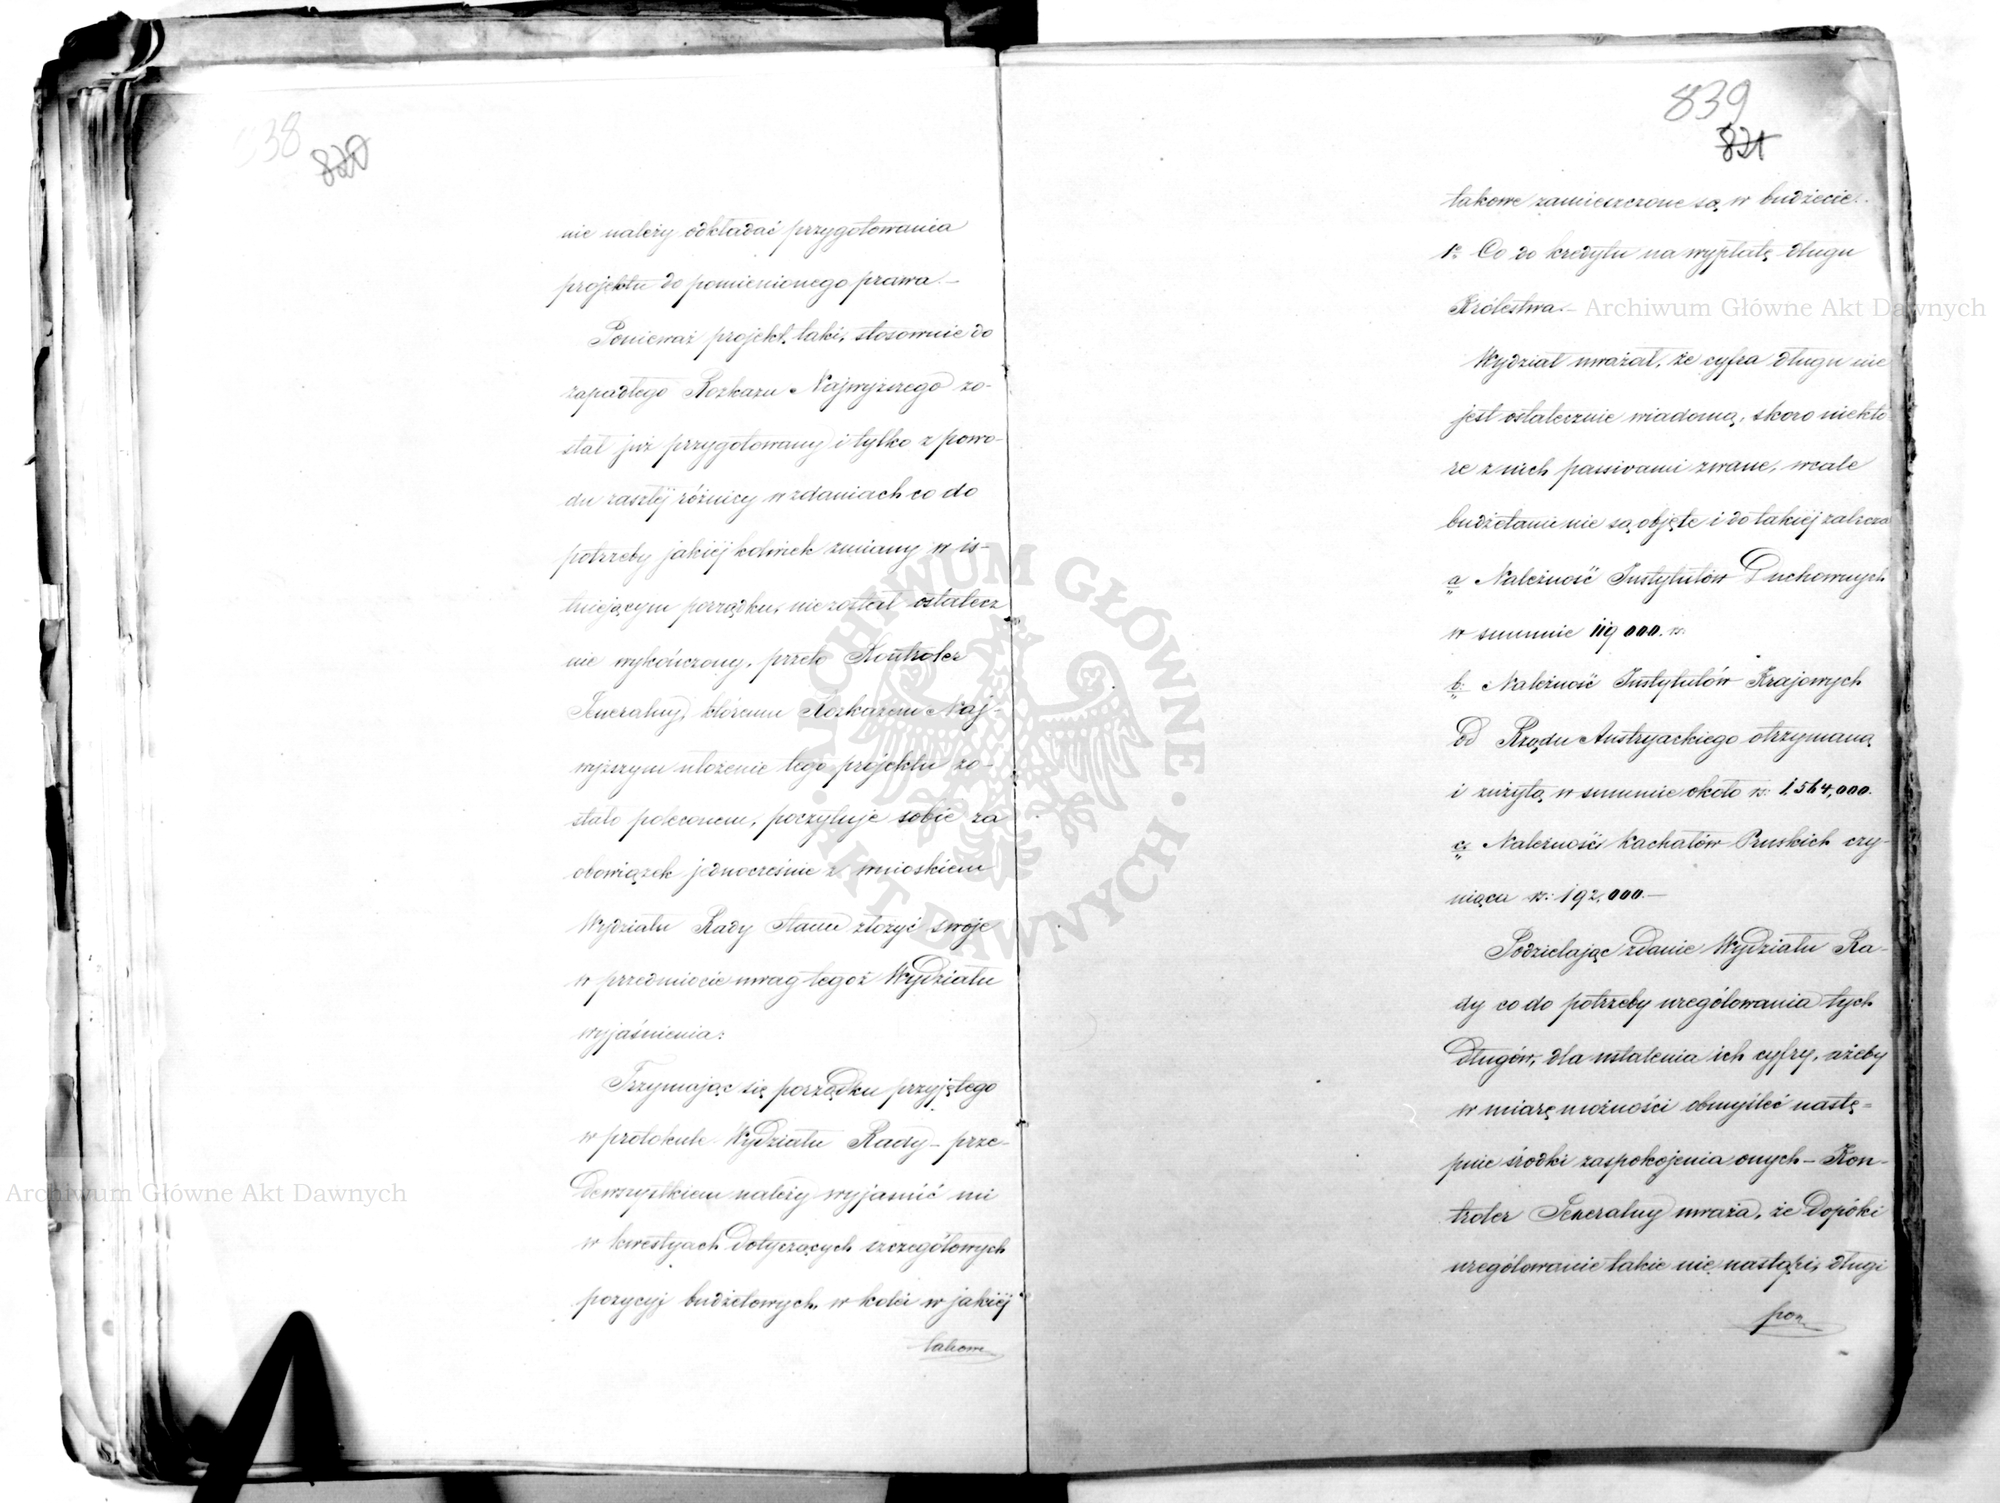 838
820
nie należy odkładać przygotowania
projektu do pomienionego prawa.–
Ponieważ projekt taki, stosownie do
zapadłego Rozkazu Najwyższego zo-
stał już przygotowany i tylko z powo-
du zaszłéj różnicy w zdaniach co do
potrzeby jakiéj kolwiek zmiany w is-
tniejącym porządku, nie został ostatecz
nie wykończony, przeto Kontroler
Jeneralny, któremu Rozkazem Naj-
wyższym ułożenie tego projektu zo-
stało poleconem, poczytuje sobie za
obowiązek jednocześnie z wnioskiem
Wydziału Rady Stanu złożyć swoje
w przedmiocie uwag tegoż Wydziału
wyjaśnienia:
Trzymając się porządku przyjętego
w protokule Wydziału Rady – prze-
dewszystkiem należy wyjaśnić mi
w kwestyach dotyczących szczegółowych
pozycyj budżetowych, w kolei w jakiéj
takowe
839
821
takowe zamieszczone są w budżecie.
1o Co do kredytu na wypłatę długu
Królestwa.–
Wydział uważał, że cyfra długu nie
jest ostatecznie wiadomą, skoro niektó
re z nich passivami zwane, wcale
budżetami nie są objęte i do takiéj zalicza
a, Należność Instytutów Duchownych
w summie 119000. rs.
b, Należność Instytutów Krajowych
od Rządu Austryackiego otrzymaną
i zużytą w summie około rs: 1,564,000.
c, Należności Kachatów Pruskich czy-
niąca rs: 192,000.–
Podzielając zdanie Wydziału Ra-
dy co do potrzeby urególowania tych
długów, dla ustalenia ich cyfry, ażeby
w miarę możności obmyśleć nastę=
pnie środki zaspokojenia onych – Kon-
troler Jeneralny uważa, że dopóki
urególowanie takie nie nastąpi, długi
poz
Archiwum Główne Akt Dawnych
Archiwum Główne Akt Dawnych
ARCHIWUM GŁÓWNE · AKT DAWNYCH ·